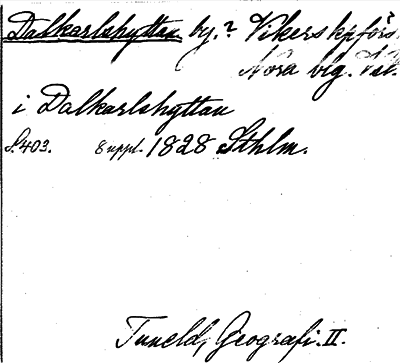 Dalkarlshyttan by.? Vikers kpförs.
Nora blg. Väst.
i Dalkarlshyttan
S. 403. 8 uppl. 1828 Sthlm.
Tuneld, Geografi. II.